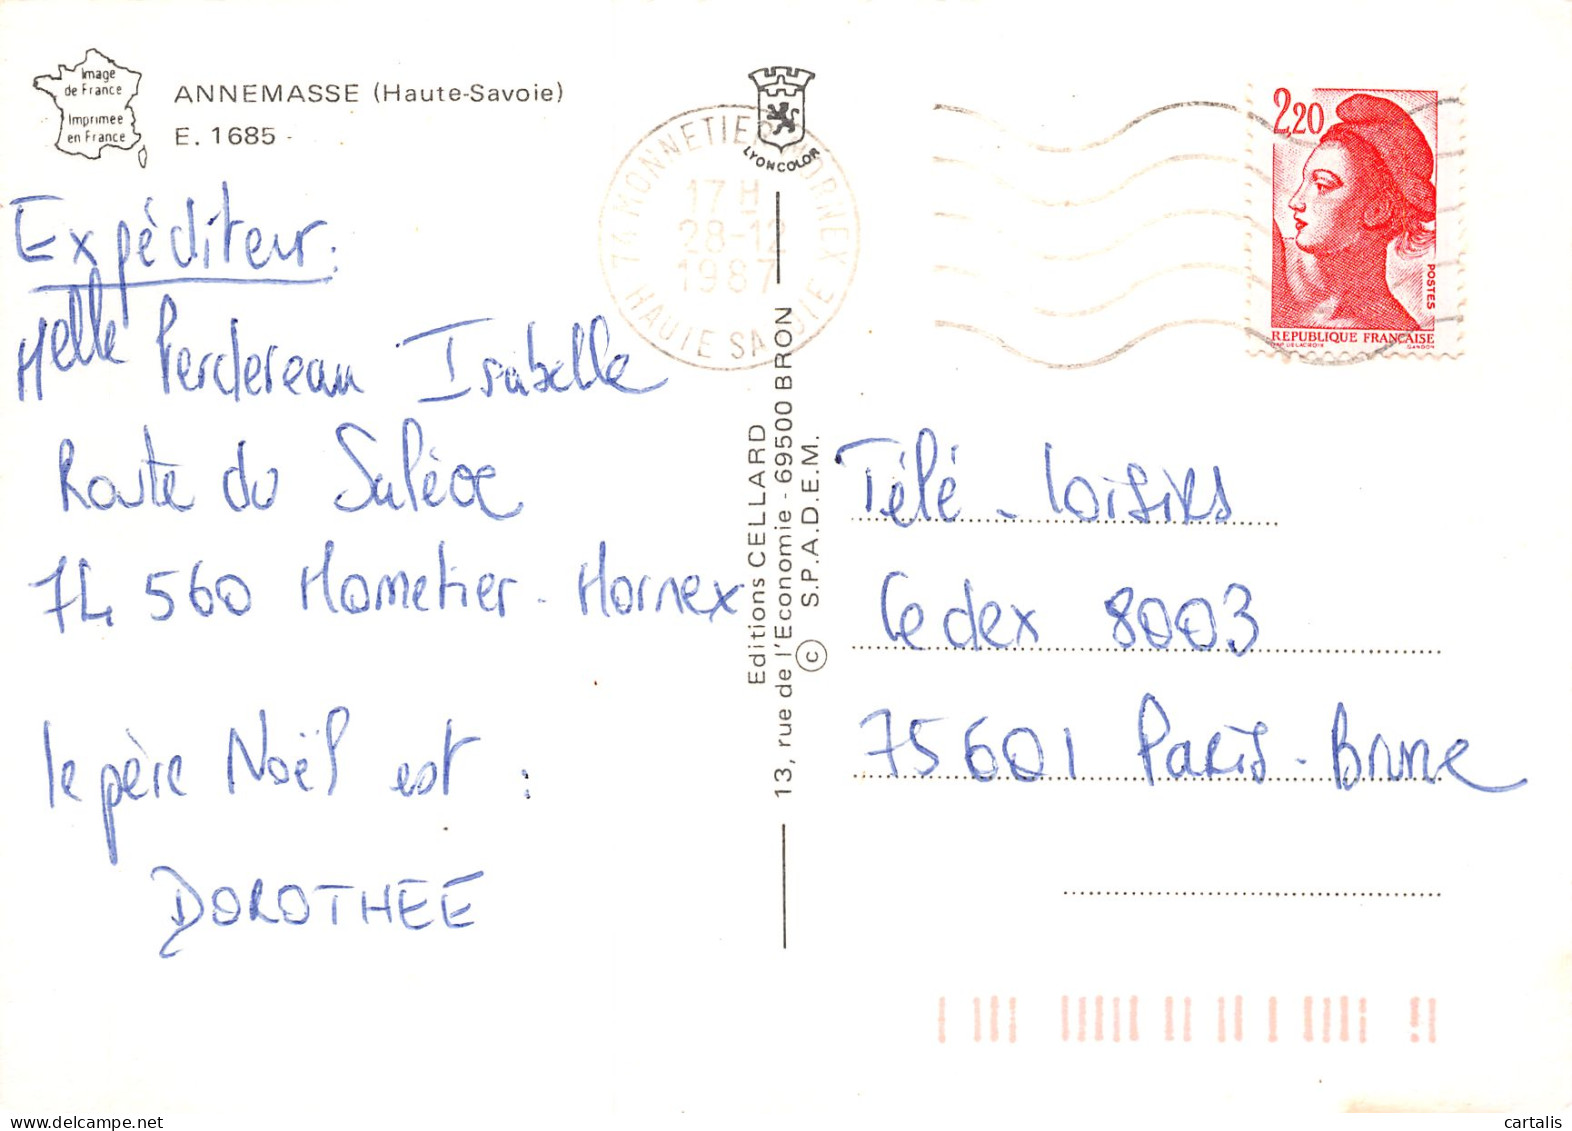 Image
de France
Imprimée
en France
ANNEMASSE (Haute-Savoie)
E. 1685
LYONCOLOR
74 MONNETIER MORNEX
17 H
28-12
1987
HAUTE SAVOIE
2,20
POSTES
REPUBLIQUE FRANÇAISE
D'AP. DELACROIX
GANDON
Expéditeur :
Melle Perdereau Isabelle
Route du Salève
74 560 Monetier - Mornex
le père Noël est :
DOROTHEE
Editions CELLARD
13, rue de l'Economie - 69500 BRON
© S.P.A.D.E.M.
Télé - Loisirs
Cedex 8003
75601 Paris - Brune
cartalis